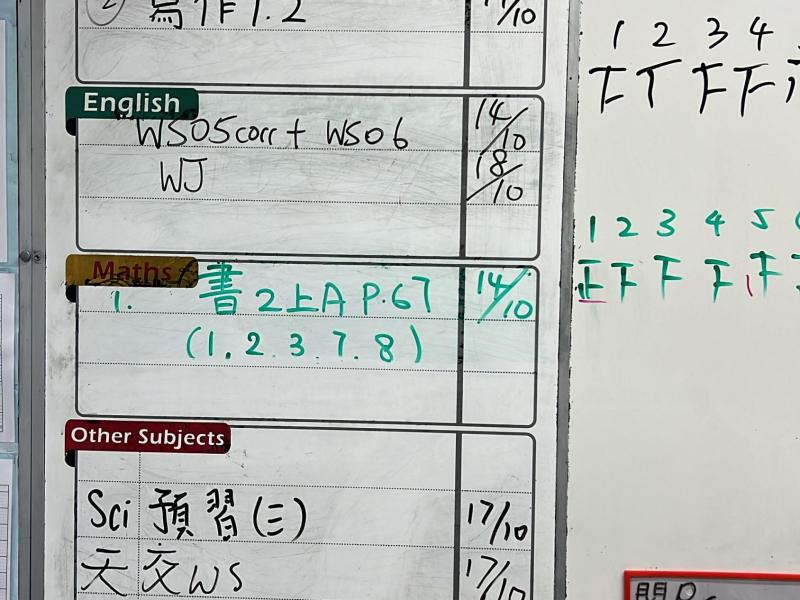 ② 寫作1.2
11/10
English
WS05corr + WS06 14/10
WJ 18/10
Maths
1. 書2上A P.67 14/10
(1.2.3.7.8)
Other Subjects
Sci 預習(三) 17/10
天交WS 17/10
1 2 3 4
1 2 3 4 5